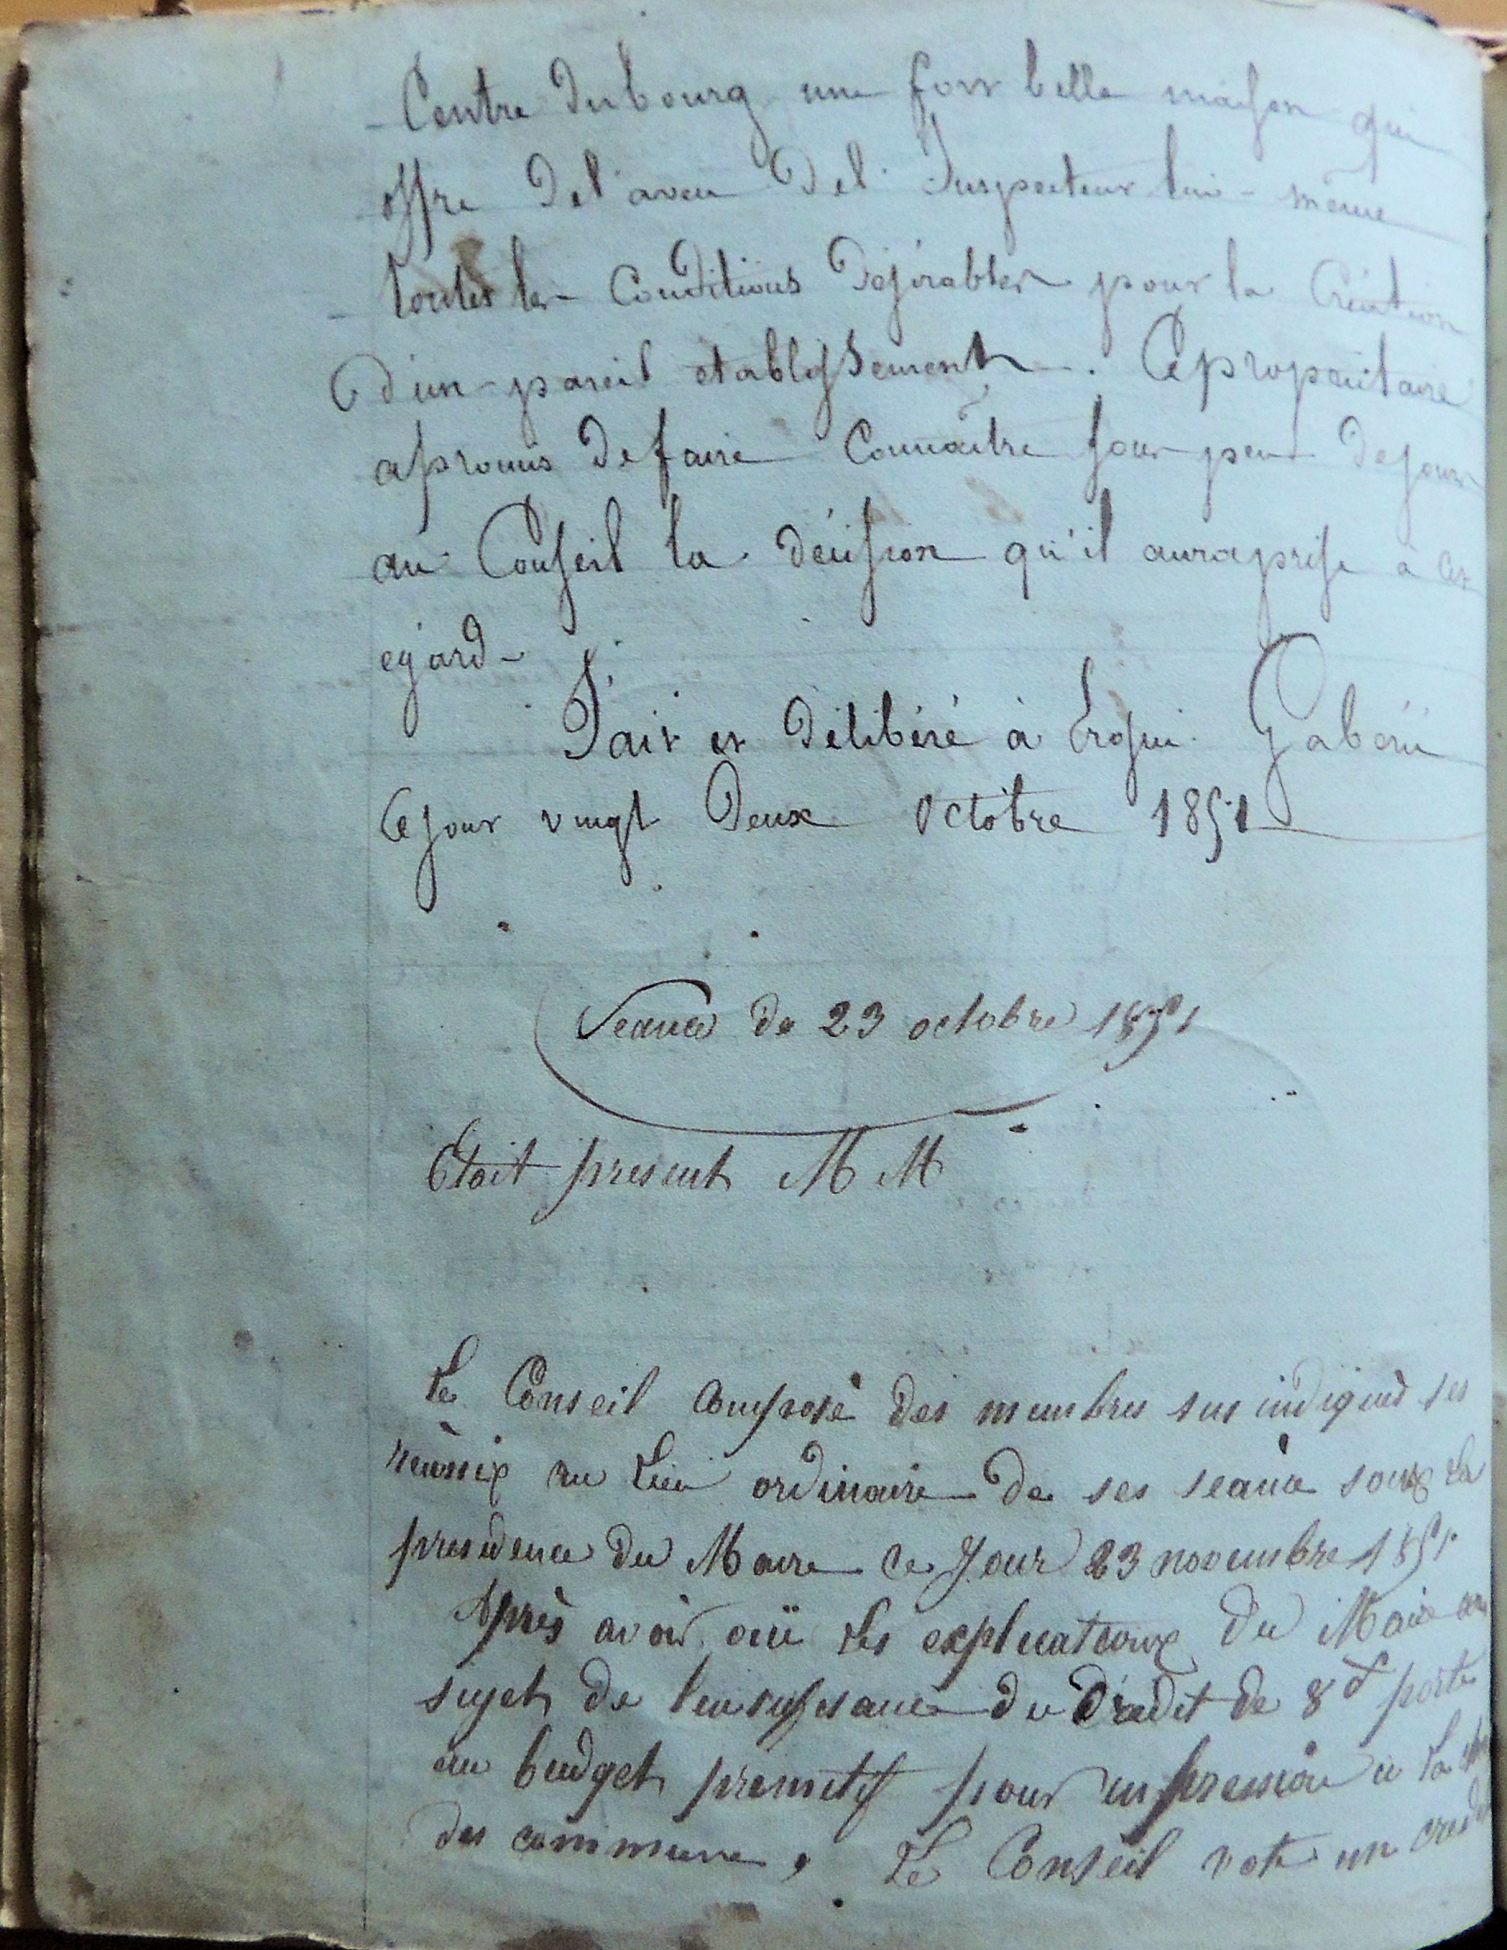 Centre du bourg une fort belle maison qui
offre de l'aveu de l'Inspecteur lui-même
toutes les conditions désirables pour la création
d'un pareil etablissement. Ce propriétaire
a promis de faire connaître sous peu de jours
au Conseil la décision qu'il aura prise à cet
egard -
Fait et délibéré à Ergué Gabéric
Ce jour vingt deux octobre 1851
Seance de 23 octobre 1851
Etoit present MM
Le Conseil composé des membres sus indiqués
reunix au Lieu ordinaire de ses seance soux la
presidence du Maire ce Jour 23 novembre 1851.
Après avoir oüi Les explicationx du Maire au
sujet de l'insuffisance du Credit de 8 f porté
au budget primitif pour impression à la
des commune, Le Conseil vote un credit